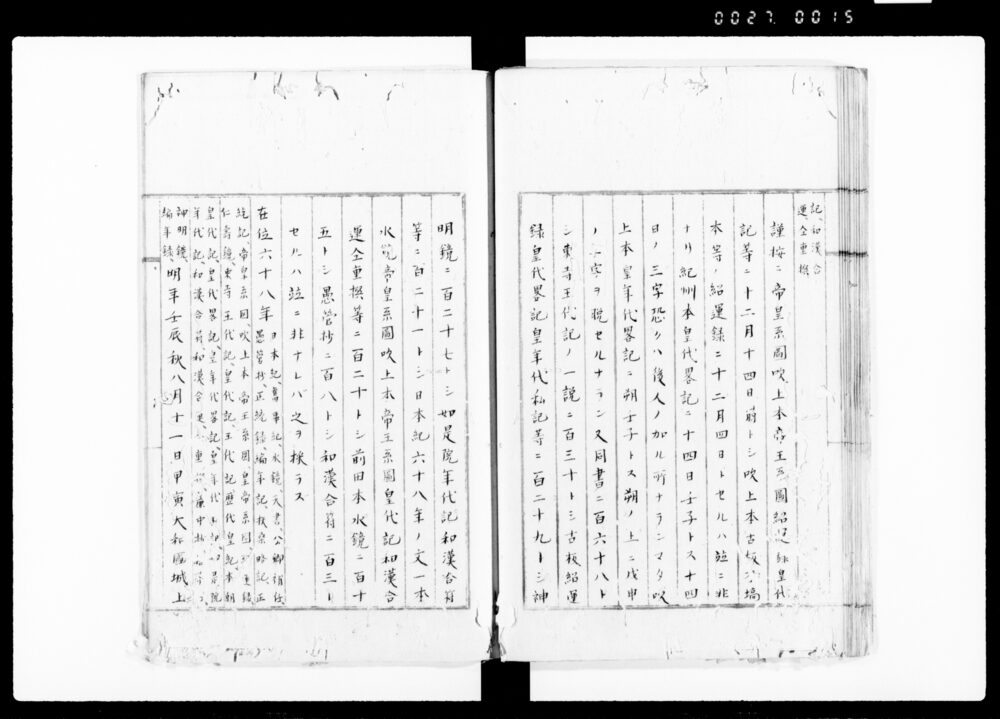 0027.0015
記、和漢合
運、仝重撰
謹按ニ帝皇系圖吹上本帝王系圖紹運録皇代
記等ニ十二月十四日崩トシ吹上本古板塙
本等ノ紹運録ニ十二月四日トセルハ竝ニ非
ナリ紀州本皇代畧記ニ十四日壬子トス十四
日ノ三字恐クハ後人ノ加ル所ナランマタ以
上本皇年代畧記ニ朔壬子トス朔ノ上ニ戊申
ノ二字ヲ脱セルナラン又同書ニ百六十八ト
シ東寺王代記ノ一說ニ百三十トシ古板紹運
録皇代畧記皇年代私記等ニ百二十九トシ神
明鏡ニ百二十七トシ如是院年代記和漢合符
等ニ百二十一トシ日本紀六十八年ノ文一本
水鏡帝皇系圖吹上本帝王系圖皇代記和漢合
運仝重撰等ニ百二十トシ前田本水鏡ニ百十
五トシ愚管抄ニ百八トシ和漢合符ニ百三ト
セルハ竝ニ非ナレバ之ヲ採ラス
在位六十八年日本紀、舊事記、水鏡、大書、公卿補任、
愚管抄、正統録、編年記、扶桑略記、正
統記、帝皇系圖、吹上本帝王系圖、皇帝系圖、運録、
仁壽鏡、東寺王代記、皇代記、王代記、歷代皇紀、本朝
皇代記、皇代畧記、皇年代畧記、皇年代私記、如是院
年代記、和漢合符、和漢合運、仝重撰、簾中抄、
神明鏡、
編年録、明年壬辰秋八月十一日甲寅大和國城上